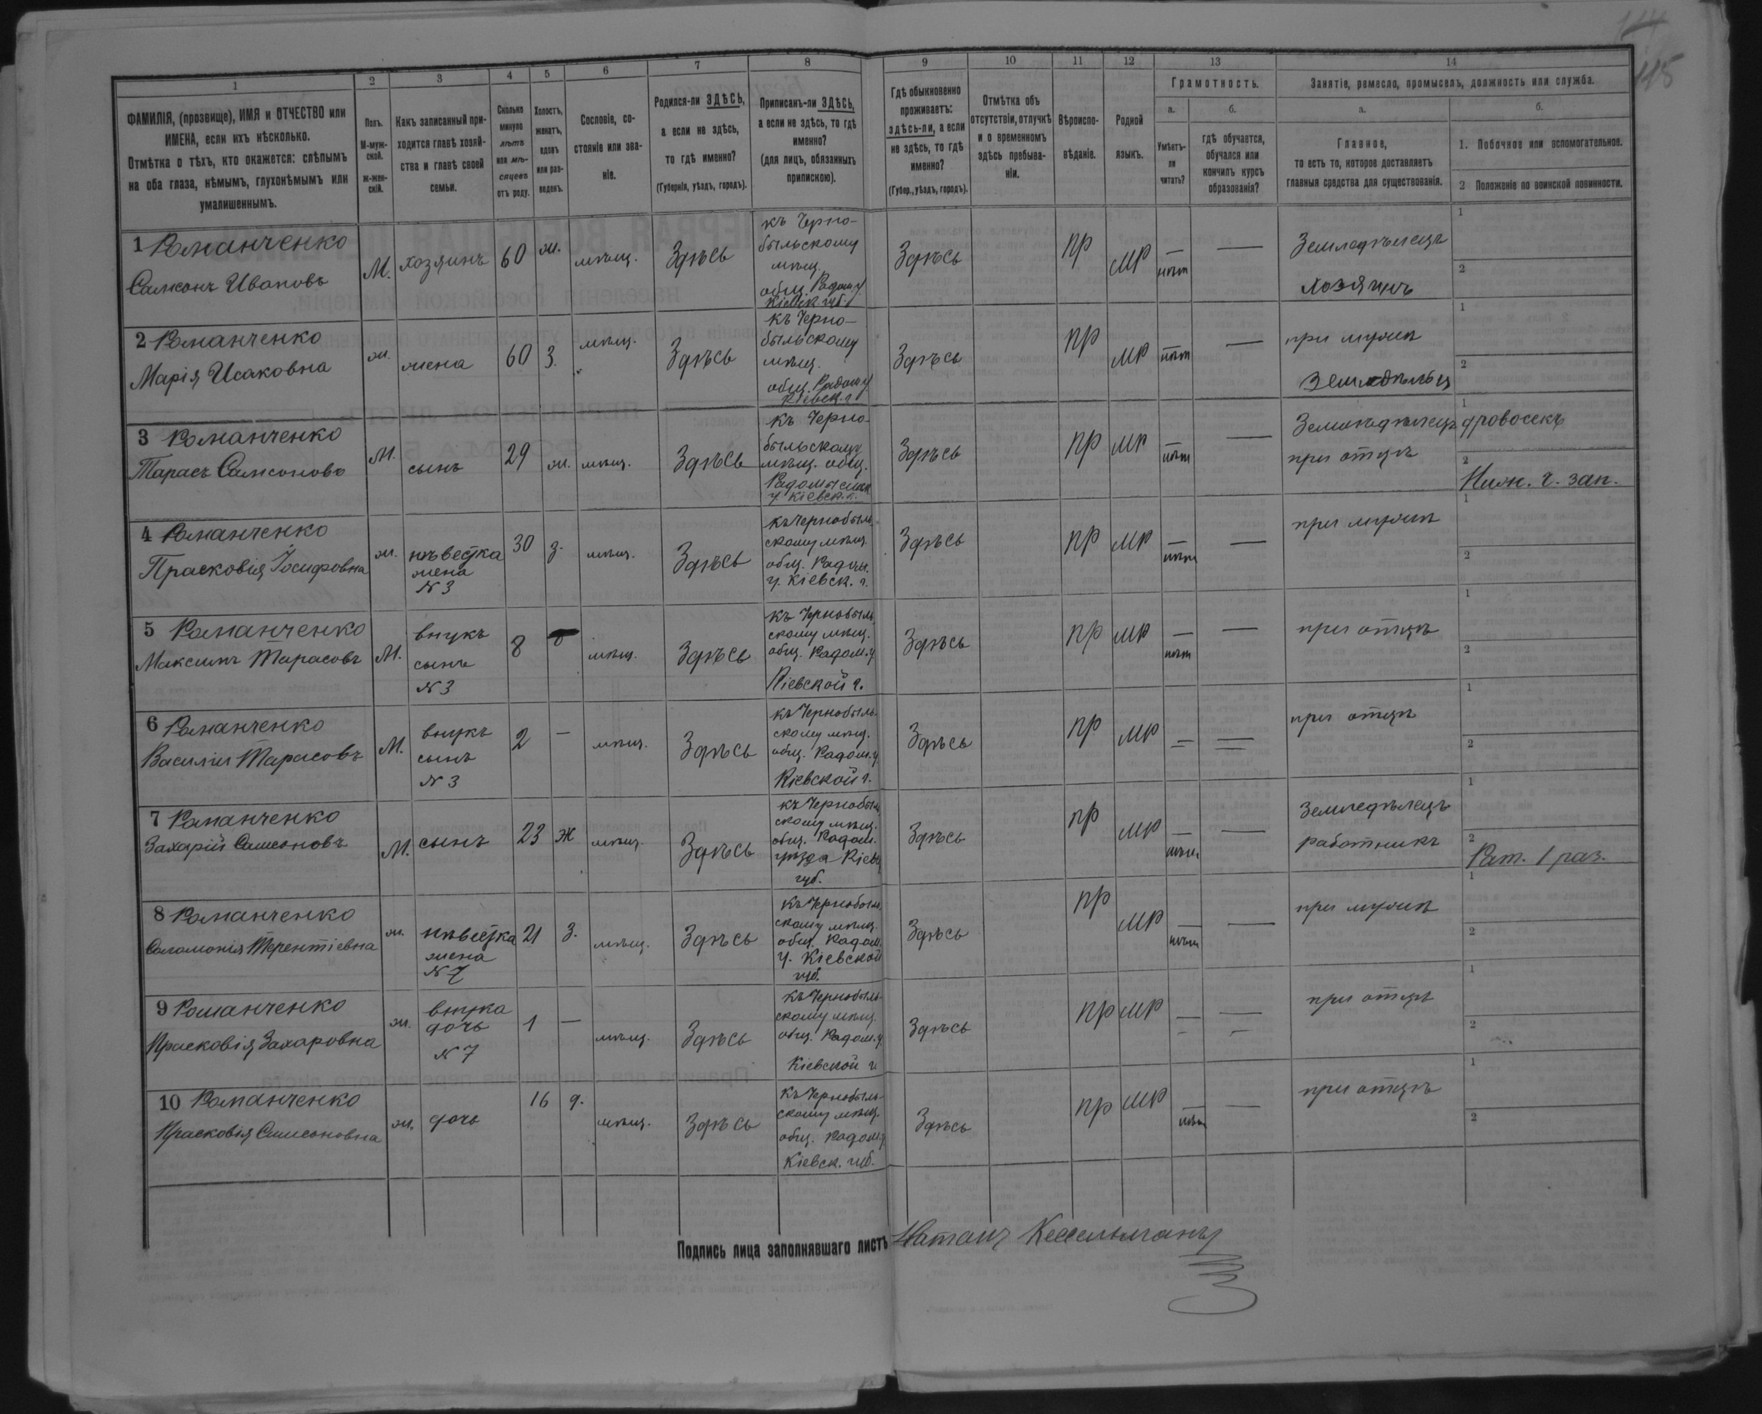 114
115
1
2
3
4
5
6
7
8
9
10
11
12
13
14
ФАМИЛІЯ, (прозвище), ИМЯ и ОТЧЕСТВО или
ИМЕНА, если ихъ нѣсколько.
Отмѣтка о тѣхъ, кто окажется: слѣпымъ
на оба глаза, нѣмымъ, глухонѣмымъ или
умалишеннымъ.
Полъ.
М-муж-
ской.
ж-жен-
скій.
Какъ записанный при-
ходится главѣ хозяй-
ства и главѣ своей
семьи.
Сколько
минуло
лѣтъ
или мѣ-
сяцевъ
отъ роду.
Холостъ,
женатъ,
вдовъ
или раз-
веденъ.
Сословіе, со-
стояніе или зва-
ніе.
Родился-ли ЗДѢСЬ,
а если не здѣсь,
то гдѣ именно?
(Губернія, уѣздъ, городъ).
Приписанъ-ли ЗДѢСЬ,
а если не здѣсь, то гдѣ
именно?
(для лицъ, обязанныхъ
припискою).
Гдѣ обыкновенно
проживаетъ:
здѣсь-ли, а если
не здѣсь, то гдѣ
именно?
(Губер., уѣздъ, городъ).
Отмѣтка объ
отсутствіи, отлучкѣ
и о временномъ
здѣсь пребыва-
ніи.
Вѣроиспо-
вѣданіе.
Родной
языкъ.
Грамотность.
а.
Умѣетъ-
ли
читать?
б.
гдѣ обучается,
обучался или
кончилъ курсъ
образованія?
Занятія, ремесло, промыселъ, должность или служба.
а.
Главное,
то есть то, которое доставляетъ
главныя средства для существованія.
б.
1. Побочное или вспомогательное.
2 Положеніе по воинской повинности.
1 Романченко
Самсонъ Ивановъ
М.
хозяинъ
60
ж.
мѣщ.
Здѣсь
къ Черно-
быльскому
мѣщ.
общ. Радом у
Кіевск губ.
Здѣсь
пр
мр
—
нѣт
—
Земледѣлецъ
хозяинъ
1
2
2 Романченко
Марія Исаковна
ж.
жена
60
з.
мѣщ.
Здѣсь
къ Черно-
быльскому
мѣщ.
общ. Радом у
Кіевск г
Здѣсь
пр
мр
—
нѣт
—
при мужѣ
земледѣльц
1
2
3 Романченко
Тарасъ Самсоново
М.
сынъ
29
ж.
мѣщ.
Здѣсь
къ Черно-
быльскому
мѣщ. общ.
Радомысльск
у Кіевск. г.
Здѣсь
пр
мр
—
нѣт
—
Земледѣлецъ
при отцѣ
1
дровосекъ
2
Нижн. ч. зап.
4 Романченко
Прасковія Іосифовна
ж.
невѣстка
жена
N 3
30
з.
мѣщ.
Здѣсь
къ Чернобыль
скому мѣщ
общ. Радом.
у. Кіевск. г.
Здѣсь
пр
мр
—
нѣт
—
при мужѣ
1
2
5 Романченко
Максимъ Тарасовъ
М.
внукъ
сынъ
N 3
8
мѣщ.
Здѣсь
къ Чернобыль
скому мѣщ.
общ. Радом. у
Кіевской г.
Здѣсь
пр
мр
—
нѣт
—
при отцѣ
1
2
6 Романченко
Василій Тарасовъ
М.
внукъ
сынъ
N 3
2
—
мѣщ.
Здѣсь
къ Чернобыль-
скому мѣщ.
общ. Радом. у
Кіевской г.
Здѣсь
пр
мр
—
—
при отцѣ
1
2
7 Романченко
Захарій Самсоновъ
М.
сынъ
23
Ж
мѣщ.
Здѣсь
къ Чернобыль
скому мѣщ.
общ. Радом.
уѣзда Кіевс
губ.
Здѣсь
пр
мр
—
нѣт
—
Земледѣлецъ
работникъ
1
2
Рат. 1 раз.
8 Романченко
Соломонія Терентіевна
ж.
невѣстка
жена
N 7
21
з.
мѣщ.
Здѣсь
къ Чернобыль
скому мѣщ.
общ. Радом.
у. Кіевской
губ.
Здѣсь
пр
мр
—
нѣт
—
при мужѣ
1
2
9 Романченко
Прасковія Захаровна
ж.
внучка
дочь
N 7
1
—
мѣщ.
Здѣсь
къ Чернобыль-
скому мѣщ.
общ. Радом. у
Кіевской г.
Здѣсь
пр
мр
—
—
при отцѣ
1
2
10 Романченко
Прасковія Самсоновна
ж.
дочь
16
д.
мѣщ.
Здѣсь
къ Чернобыль-
скому мѣщ.
общ. Радом у
Кіевск. губ.
Здѣсь
пр
мр
—
нѣт
—
при отцѣ
1
2
Подпись лица заполнявшаго листъ Натанъ Кесельманъ